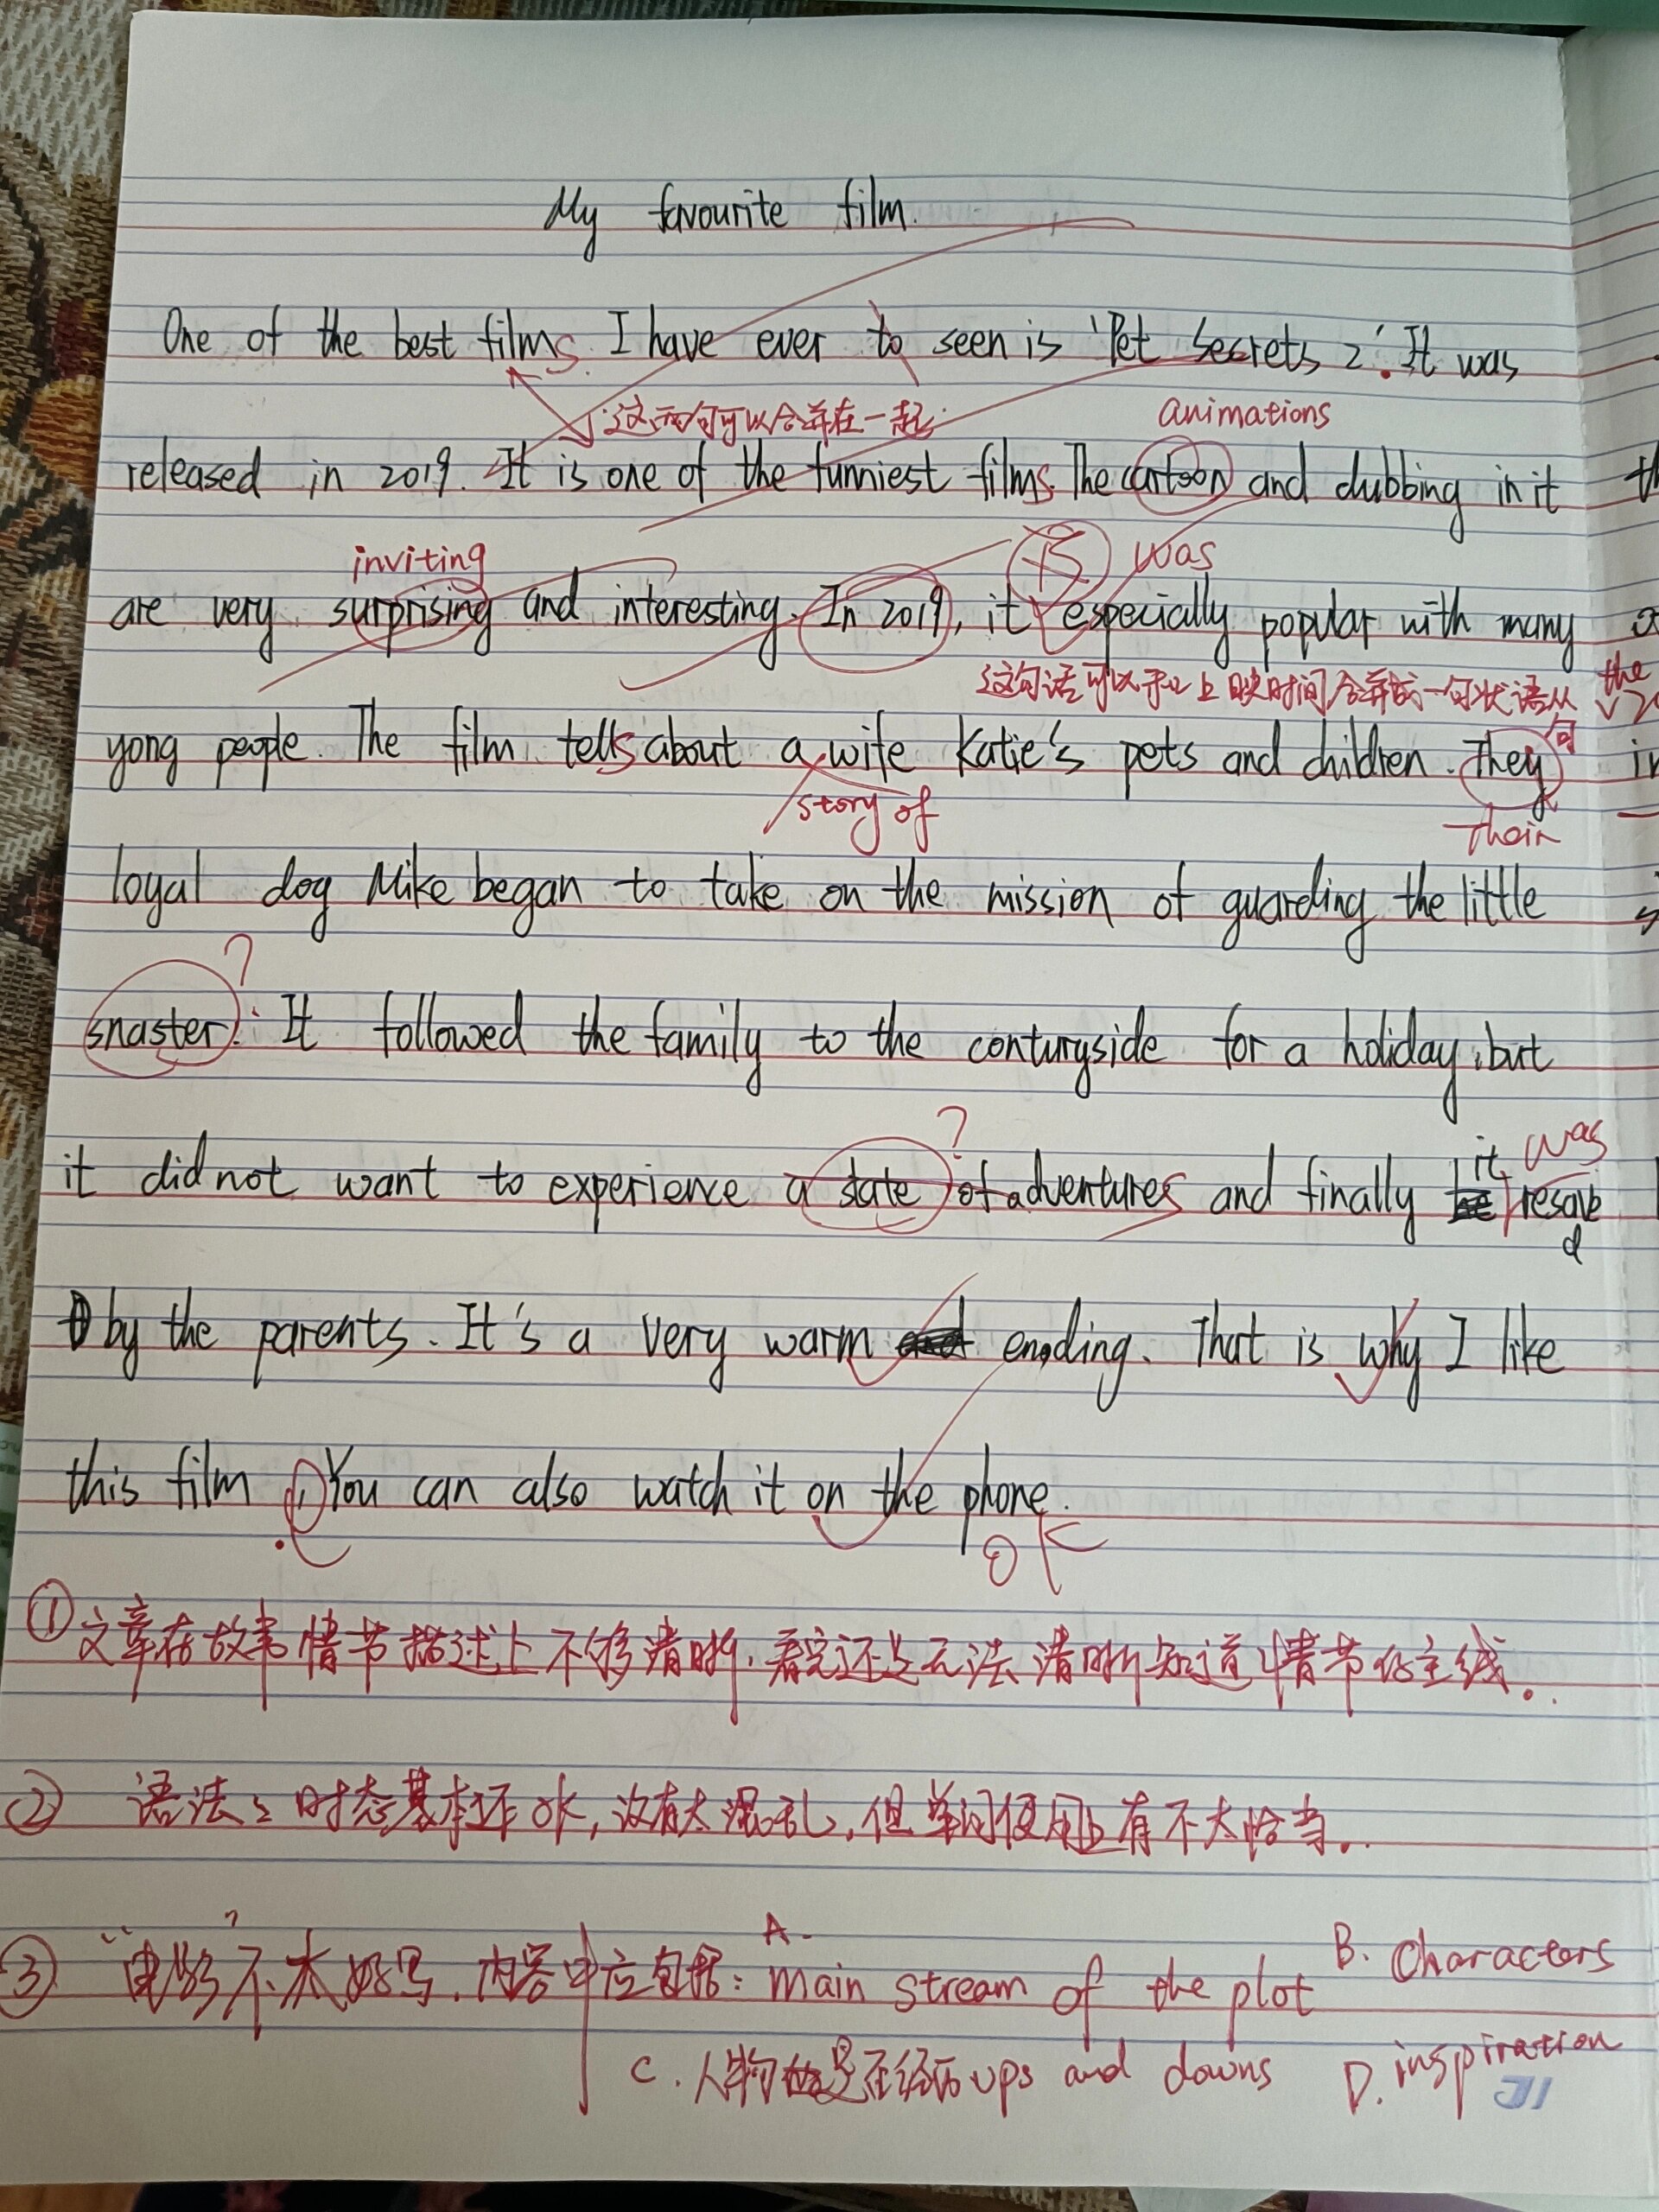 My favourite film.
One of the best films. I have ever to seen is 'Pet Secrets 2'. It was
这两句可以合并在一起 animations
released in 2019. It is one of the funniest films. The cartoon and dubbing in it
inviting is was
are very surprising and interesting. In 2019, it especially popular with many
这句话可以和上映时间合并成一句状语从句 the
yong people. The film tells about a wife Katie's pets and children. They
story of Their
loyal dog Mike began to take on the mission of guarding the little
?
snaster. It followed the family to the conturyside for a holiday, but
?
it did not want to experience a state of adventures and finally it was resaved
by the parents. It's a very warm ending. That is why I like
this film. You can also watch it on the phone.
OK
① 文章在故事情节描述上不够清晰，看完还是无法清晰知道情节的主线。
② 语法上时态基本还OK，没有太混乱，但单词使用上有不太恰当。
③ “电影”不太好写，内容中应包括：A. main stream of the plot B. Characters
C. 人物是否经历 ups and downs D. inspiration